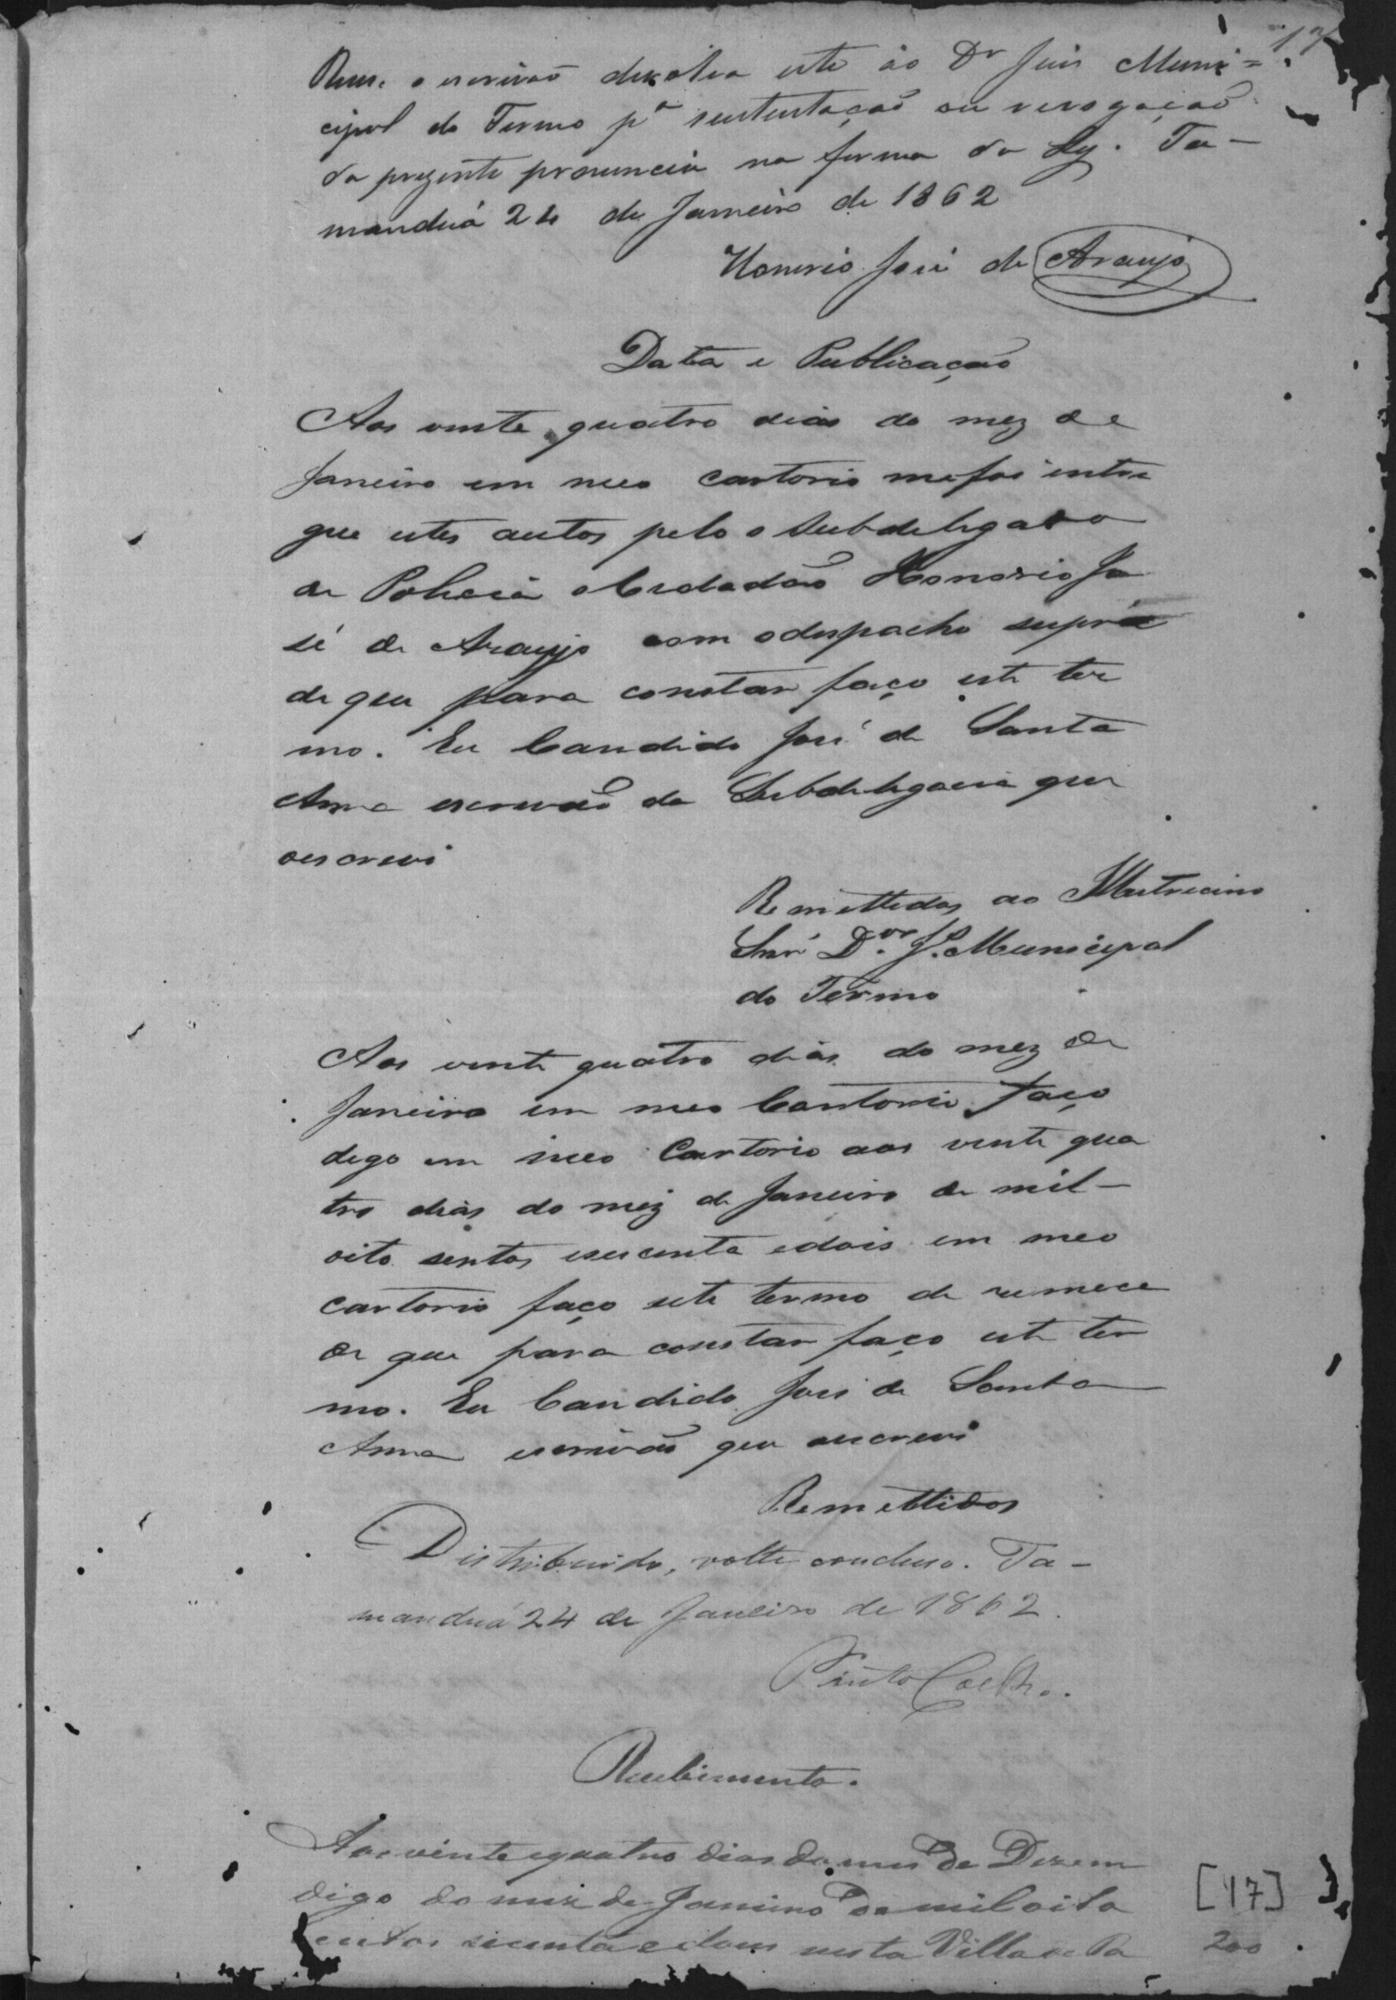 17
o escrivão devolva este ao Dr Juis Muni=
cipal do Termo pª sustentação ou revogação
da prezente pronuncia na forma da Ley. Ta-
manduá 24 de Janeiro de 1862
Honorio José de Araujo
Data e Publicação
Aos vinte quatro dias do mez de
Janeiro em meo cartorio mefoi intre
gue estes autos pelo o Subdelegado
de Policia o Cidadão Honorio Jo
sé de Araujo com odespacho supra
de que para constar faço este ter
mo. Eu Candido José de Santa
Anna escrivão da Subdelegacia que
oescrevi
Remettidos ao
Snr Dor J. Municipal
do Termo
Aos vinte quatro dias do mez de
Janeiro em meo Cartorio faço
digo em meo Cartorio aos vinte qua
tro dias do mez de Janeiro de mil-
oito sentos esecenta edois em meo
cartorio faço este termo de remece
de que para constar faço este ter
mo. Eu Candido José de Santa
Anna escrivão que oescrevi
Remettidos
Distribuido, volte concluso. Ta-
manduá 24 de Janeiro de 1862.
Pinto Coelho.
Recebimento.
Aos vinte equatro dias do mes de Dezem
digo do mez de Janeiro de mil oito
centos secenta edous nesta Villa de Ta
[17]
200